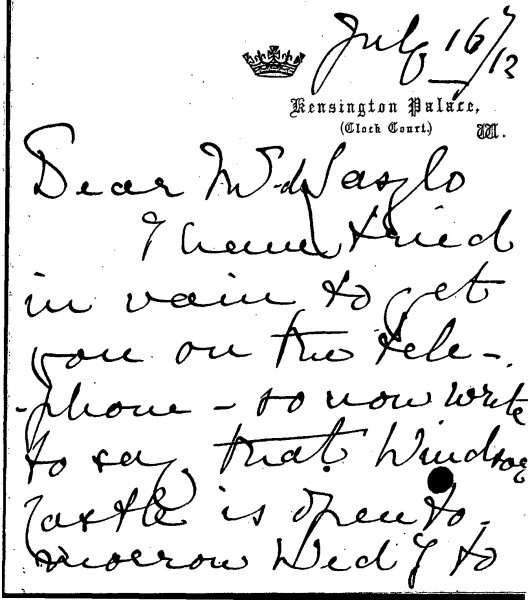 July 16/12
Kensington Palace,
(Clock Court.) W.
Dear Mr de Laszlo
I have tried
in vain to get
you on the tele-
-phone - so now write
to say that Windsor
Castle is open to-
morrow Wed y to